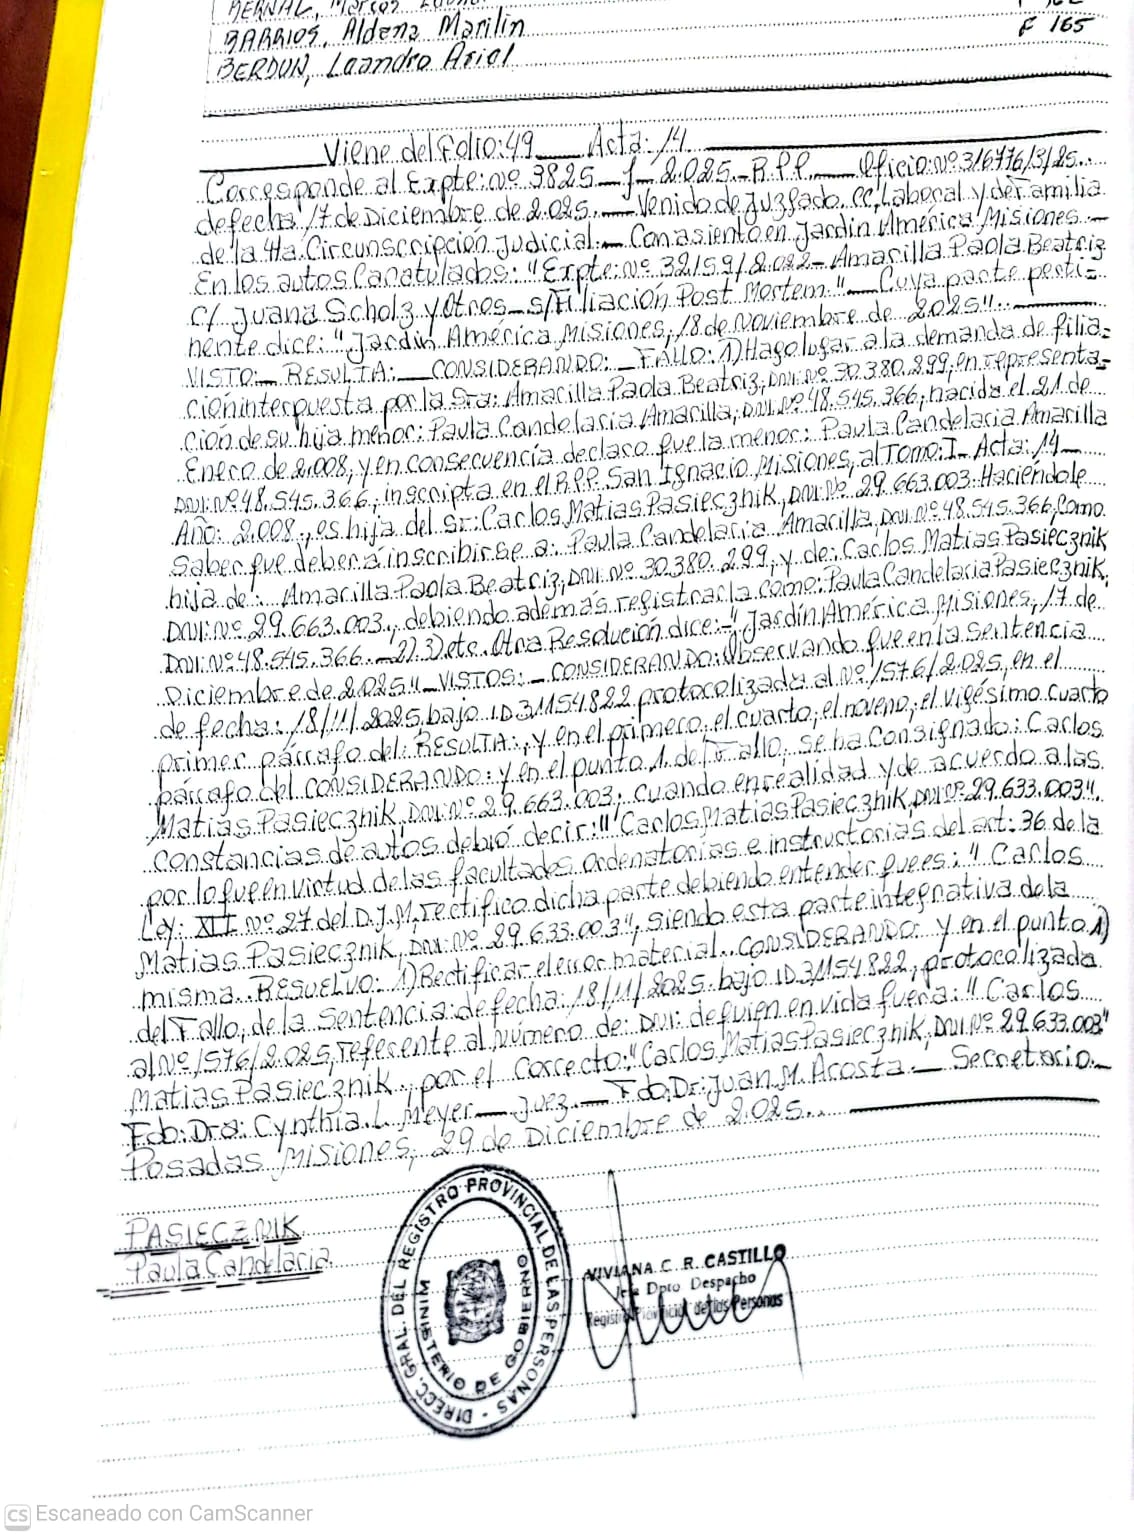 BERNAL, Marcos
BARRIOS, Aldena Marilin F 165
BERDUN, Leandro Ariel
Viene del Folio: 49 Acta: 14
Corresponde al Expte: Nº 3825-J-2.025.-R.P.P. Oficio: Nº 316776/3/25..
de fecha 17 de Diciembre de 2.025. Venido de Juzgado CC, Laboral y de Familia
de la 4ta. Circunscripción Judicial. Con asiento en Jardín América Misiones.-
En los autos Caratulados: "Expte: Nº 32159/2.022- Amarilla Paola Beatriz
C/ Juana Scholz y Otros - s/Filiación Post Mortem" Cuya parte perti=
nente dice: "Jardín América, Misiones, 18 de Noviembre de 2025"..
VISTO:- RESULTA: CONSIDERANDO: FALLO: 1) Hago lugar a la demanda de filia=
ción interpuesta por la Sra: Amarilla Paola Beatriz, DNI: Nº 30.380.299, en representa=
ción de su hija menor: Paula Candelaria Amarilla, DNI. Nº 48.545.366, nacida el 21 de
Enero de 2.008, y en consecuencia declaro que la menor: Paula Candelaria Amarilla
DNI: Nº 48.545.366, inscripta en el R.P.P. San Ignacio Misiones, al Tomo: I- Acta: 14
Año: 2.008, es hija del Sr: Carlos Matias Pasiecznik, DNI. Nº 29.663.003. Haciéndole
Saber que deberá inscribirse a: Paula Candelaria Amarilla, DNI Nº 48.545.366, Como
hija de: Amarilla Paola Beatriz, DNI: Nº 30.380.299, y de: Carlos Matias Pasiecznik
DNI: Nº 29.663.003, debiendo además registrarla como: Paula Candelaria Pasiecznik,
DNI: Nº 48.545.366. 2) 3) etc. Otra Resolución dice:-"Jardín América Misiones, 17 de
Diciembre de 2.025"- VISTOS: CONSIDERANDO: Observando que en la Sentencia
de fecha: 18/11/2025. bajo ID 31154822 protocolizada al Nº 1576/2.025, en el
primer párrafo del: RESULTA:, y en el primero, el cuarto, el noveno, el vigésimo cuarto
párrafo del CONSIDERANDO: y en el punto 1. del Fallo, se ha Consignado: Carlos
Matias Pasiecznik, DNI: Nº 29.663.003, cuando en realidad y de acuerdo a las
constancias de autos debió decir:"Carlos Matias Pasiecznik, DNI Nº 29.633.003".
por lo que en virtud de las facultades ordenatorias e instructorias del art: 36 de la
Ley: XII Nº 27 del D.J.M, rectifico dicha parte debiendo entender que es: "Carlos
Matias Pasiecznik, DNI: Nº 29.633.003", siendo esta parte integrativa de la
misma.. RESUELVO: 1) Rectificar el error material.. CONSIDERANDO: y en el punto 1)
del Fallo, de la Sentencia de fecha: 18/11/2025. bajo ID 31154822, protocolizada
al Nº 1576/2.025, referente al Número de: DNI: de quien en vida fuera: "Carlos
Matias Pasiecznik, por el Correcto: "Carlos Matias Pasiecznik, DNI Nº 29.633.003"
Fdo: Dra: Cynthia. L. Meyer Juez.- Fdo. Dr: Juan M. Acosta.- Secretario.-
Posadas Misiones, 29 de Diciembre de 2.025..
PASIECZNIK
Paula Candelaria
DIRECC. GRAL. DEL REGISTRO PROVINCIAL DE LAS PERSONAS
MINISTERIO DE GOBIERNO
VIVIANA C. R. CASTILLO
Jefa Dpto Despacho
Registro Provincial de las Personas
CS Escaneado con CamScanner